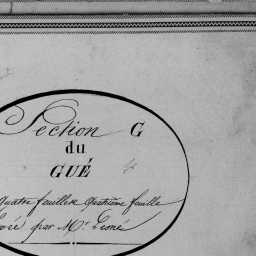 Section G
du
GUÉ
quatre feuilles quatrième feuille
par Mr Lesné